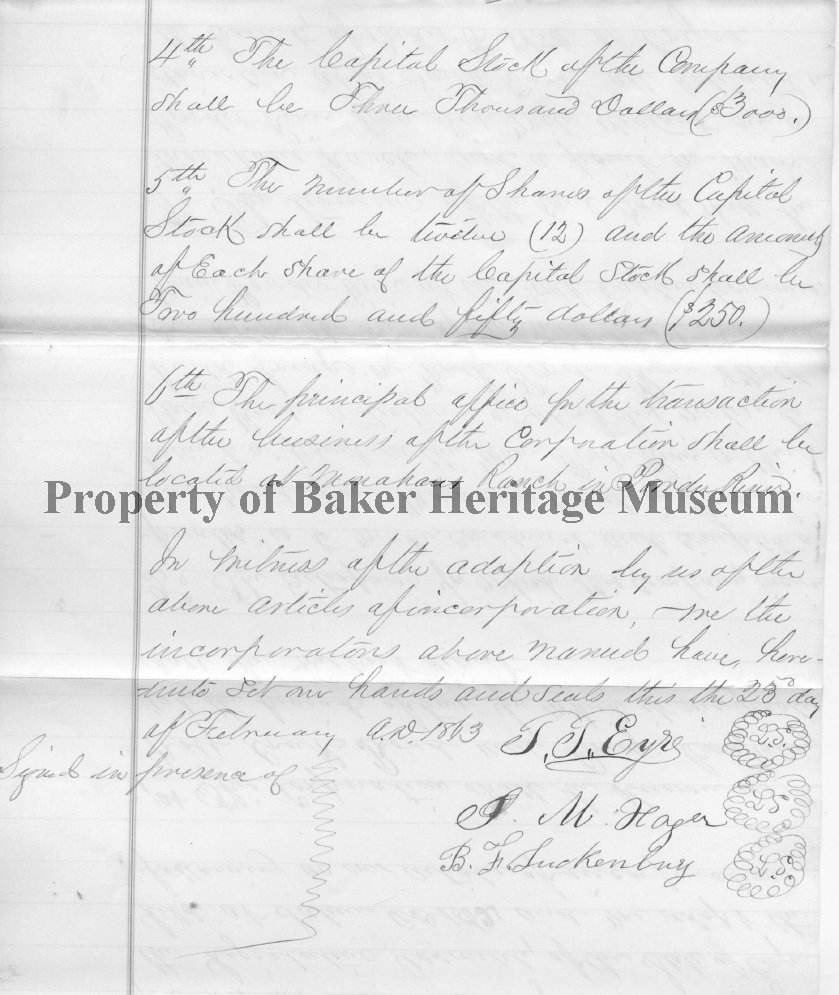 4th The Capital Stock of the Company
shall be Three Thousand Dollars ($3000.)
5th The number of Shares of the Capital
Stock shall be twelve (12) and the amount
of Each share of the Capital Stock shall be
Two hundred and fifty dollars ($250.)
6th The principal office for the transaction
of the business of the Corporation shall be
located at Monahans Ranch in Powder River.
Property of Baker Heritage Museum
In witness of the adoption by us of the
above articles of incorporation, we the
incorporators above named have, here-
unto set our hands and seals this the day
of February A.D. 1863
T. T. Eyre L.S.
Signed in presence of
M. Hager L.S.
B. F. L.S.